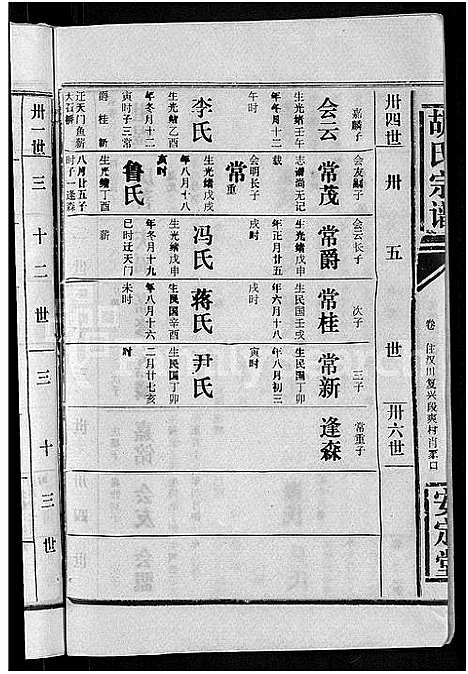 胡氏宗谱
卷
住汉川复兴段爽村肖家口
安定堂
卅四世
卅五世
卅六世
嘉麟子
会云
生光绪壬午
年冬月十二
午时
李氏
生光绪乙酉
年冬月十二
寅时子三常
爵桂新
迁天门鱼薪
会友嗣子
常茂
志谱簿无记
载
会明长子
常重
生光绪戊戌
年八月十八
鲁氏
生光绪丁酉
八月廿五子
时子一逢森
会云长子
常爵
生光绪戊申
年正月廿五
戌时
冯氏
生光绪戊申
年冬月十九
巳时迁天门
薪
次子
常桂
生民国壬戌
年六月十八
戌时
蒋氏
生民国辛酉
年八月十六
未时
三子
常新
生民国丁卯
年八月初三
寅时
尹氏
生民国丁卯
二月廿七亥
时
常重子
逢森
卅一世
三十二世
三十三世